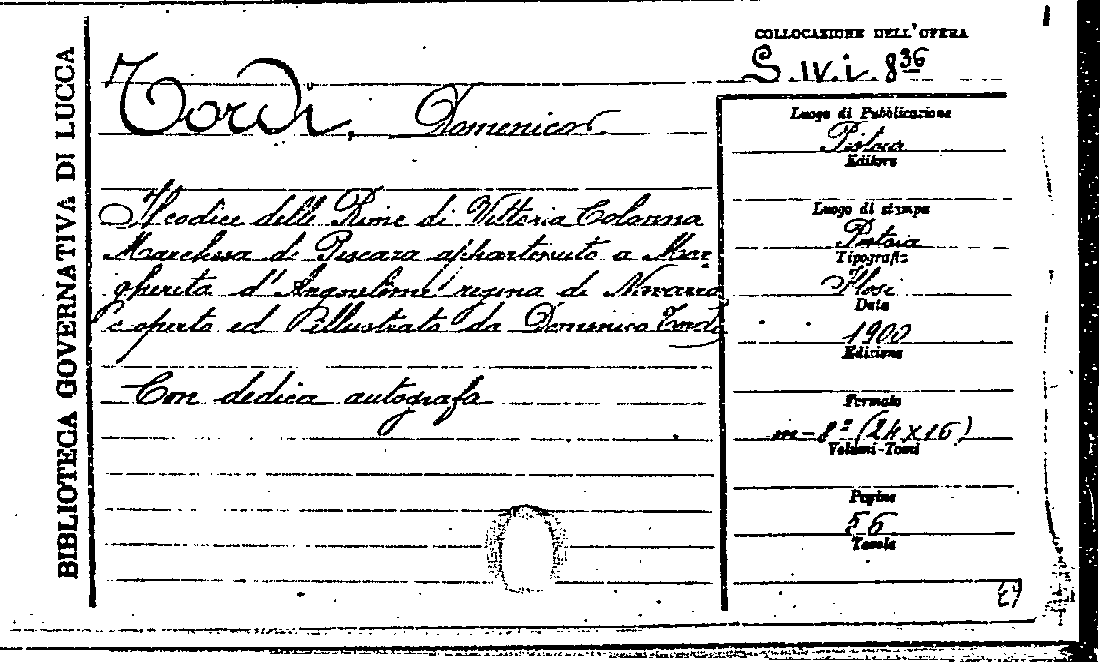 BIBLIOTECA GOVERNATIVA DI LUCCA
COLLOCAZIONE DELL'OPERA
S. IV. i. 836
Tordi, Domenico
Il codice delle Rime di Vittoria Colonna
Marchesa di Pescara appartenuto a Mar
gherita d'Angoulême regina di Navarra
scoperto ed illustrato da Domenico Tordi
Con dedica autografa
Luogo di Pubblicazione
Pistoia
Editore
Luogo di stampa
Pistoia
Tipografia
Flori
Data
1900
Edizione
Formato
in-8º (24x16)
Volumi-Tomi
Pagine
56
Tavole